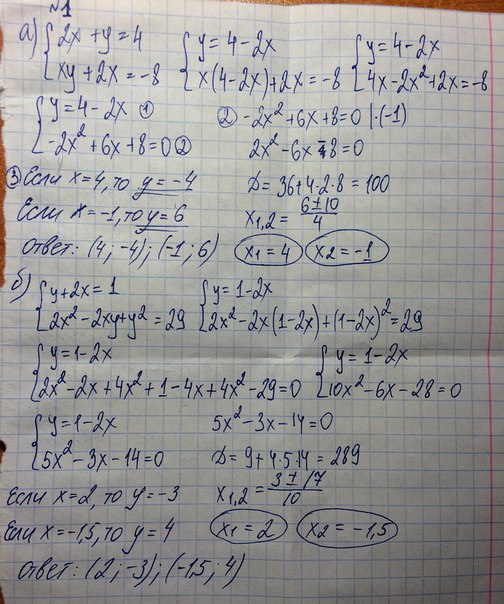 №1
а) {2x + y = 4 {y = 4 - 2x {y = 4 - 2x
{xy + 2x = -8 {x(4-2x)+2x = -8 {4x - 2x² + 2x = -8
{y = 4 - 2x ① ② -2x² + 6x + 8 = 0 |·(-1)
{-2x² + 6x + 8 = 0 ② 2x² - 6x - 8 = 0
③ Если x = 4, то y = -4 D = 36 + 4·2·8 = 100
Если x = -1, то y = 6 x₁,₂ = (6 ± 10)/4
Ответ: (4; -4); (-1; 6) x₁ = 4 x₂ = -1
б) {y + 2x = 1 {y = 1 - 2x
{2x² - 2xy + y² = 29 {2x² - 2x(1-2x) + (1-2x)² = 29
{y = 1 - 2x {y = 1 - 2x
{2x² - 2x + 4x² + 1 - 4x + 4x² - 29 = 0 {10x² - 6x - 28 = 0
{y = 1 - 2x 5x² - 3x - 14 = 0
{5x² - 3x - 14 = 0 D = 9 + 4·5·14 = 289
Если x = 2, то y = -3 x₁,₂ = (3 ± 17)/10
Если x = -1,5, то y = 4 x₁ = 2 x₂ = -1,5
Ответ: (2; -3); (-1,5; 4)